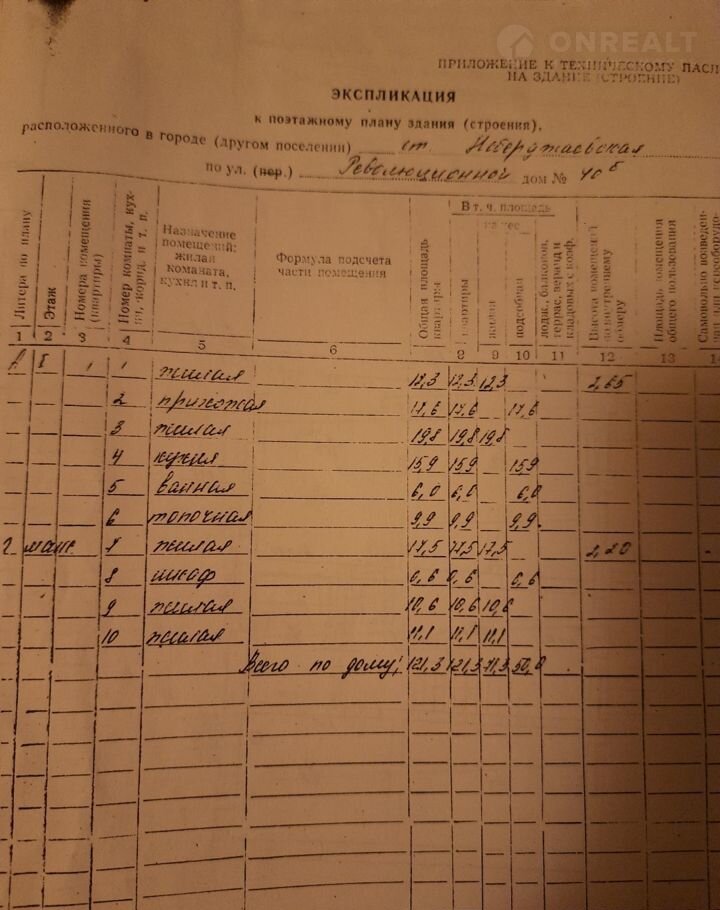 ONREALT
ПРИЛОЖЕНИЕ К ТЕХНИЧЕСКОМУ ПАСП
НА ЗДАНИЕ (СТРОЕНИЕ)
ЭКСПЛИКАЦИЯ
к поэтажному плану здания (строения),
расположенного в городе (другом поселении) ст. Неберджаевская
по ул. (пер.) Революционной дом № 40б
Литера по плану
Этаж
Номера помещения (квартиры)
Номер комнаты, кухни, корид. и т. п.
Назначение помещений: жилая команата, кухня и т. п.
Формула подсчета части помещения
Общая площадь квартиры
В т. ч. площадь
квартиры
жилая
подсобная
лодж., балконов, террас, веранд и кладовых с коэф.
Высота помещений по внутреннему обмеру
Площадь помещения общего пользования
Самовольно возведен-
1 2 3 4 5 6 8 9 10 11 12 13
А 1 1 1 жилая 12,3 12,3 12,3 2,65
2 прихожая 17,6 17,6 17,6
3 жилая 19,8 19,8 19,8
4 кухня 15,9 15,9 15,9
5 ванная 6,0 6,0 6,0
6 топочная 9,9 9,9 9,9
манс. 7 жилая 17,5 17,5 17,5 2,20
8 шкаф 0,6 0,6 0,6
9 жилая 10,6 10,6 10,6
10 жилая 11,1 11,1 11,1
Всего по дому: 121,3 121,3 71,3 50,0